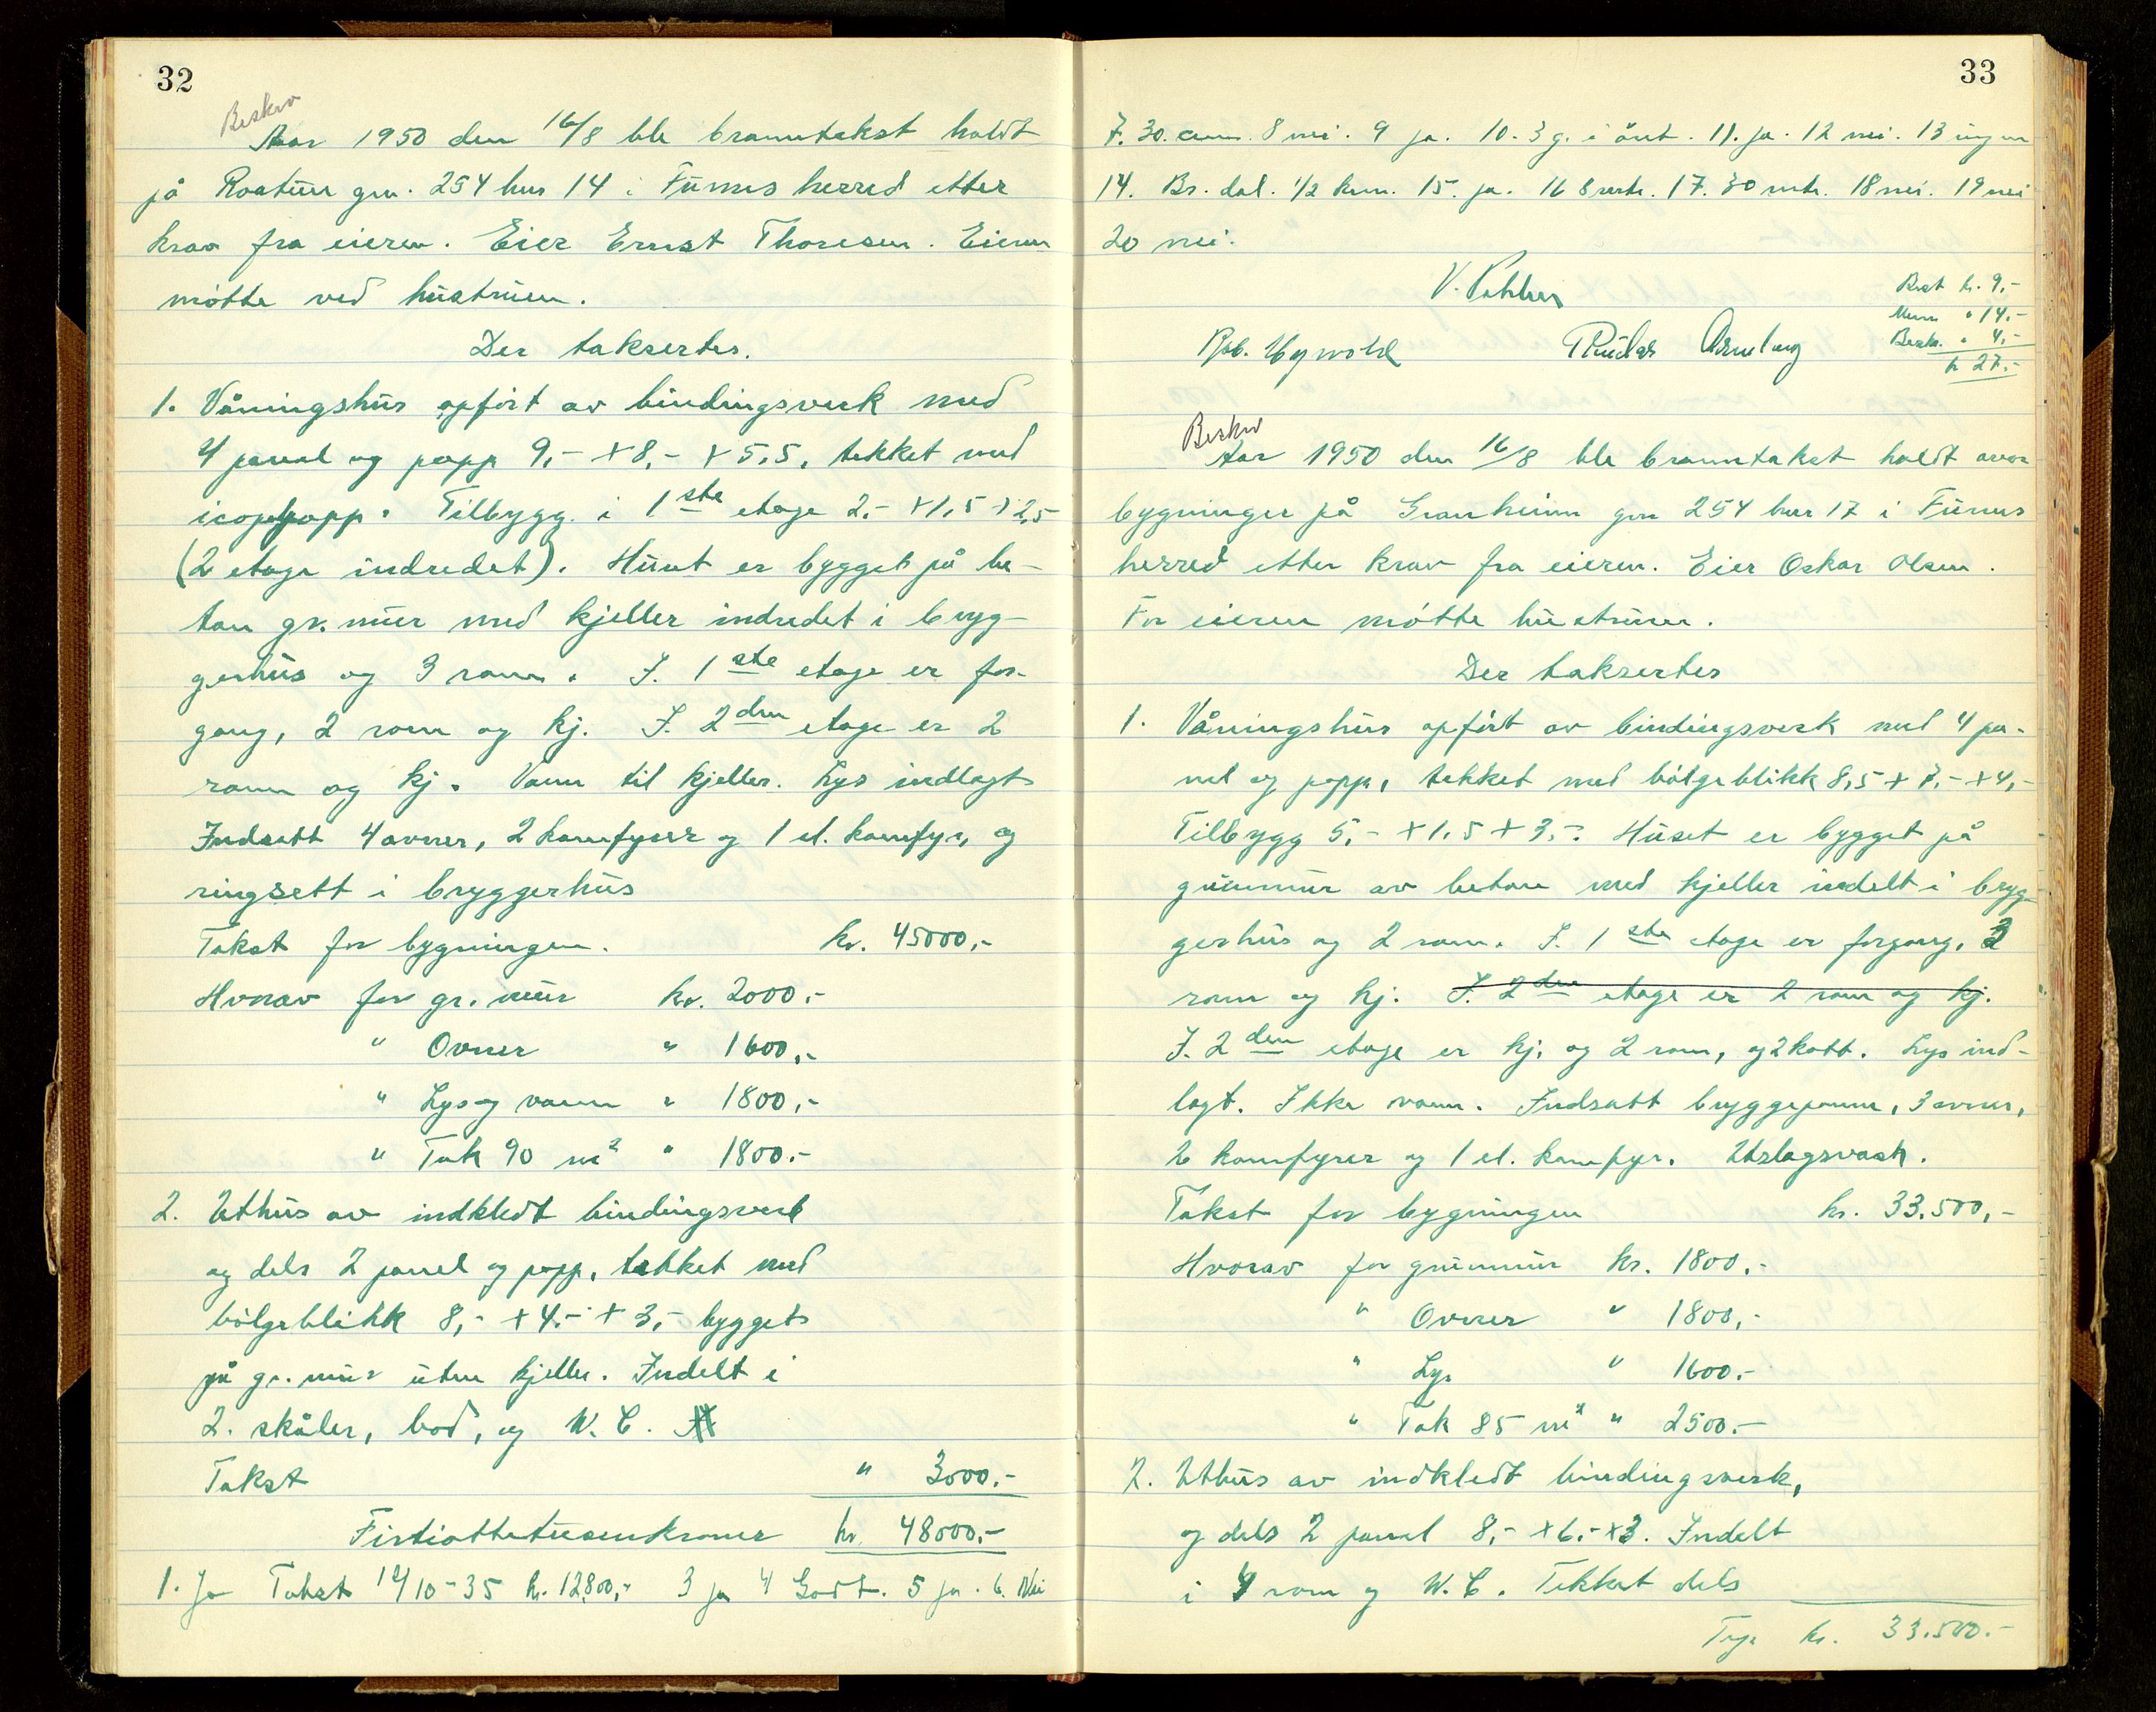 32
Beskr
Aar 1950 den 16/8 ble branntakst holdt
på Roatun gnr. 254 bnr 14 i Furnes herred etter
krav fra eieren. Eier Ernst Thoresen. Eieren
møtte ved hustruen.
Der taksertes.
1. Våningshus opført av bindingsverk med
4 panel og papp 9,- + 8,- + 5,5, tekket med
icopalpapp. Tilbygg i 1ste etage 2,- + 1,5 + 2,5
(2 etage indredet). Huset er bygget på be-
ton gr. mur med kjeller indredet i bryg-
gerhus og 3 rom. I. 1ste etage er for-
gang, 2 rom og kj. I. 2den etage er 2
rom og kj. Vann til kjeller. Lys indlagt
Indsatt 4 ovner, 2 komfyrer og 1 el. komfyr, og
ringsett i bryggerhus
Takst for bygningen. kr. 45000,-
Hvorav for gr. mur kr. 2000,-
" Ovner " 1600,-
" Lys og vann " 1800,-
" Tak 90 m2 " 1800.-
2. Uthus av indkledt bindingsverk
og dels 2 panel og papp, tekket med
bølgeblikk 8,- + 4,- + 3,- bygget
på gr. mur uten kjeller. Indelt i
2. skåler, bod, og W. C.
Takst " 3000.-
Firtiottetusenkroner kr. 48000.-
1. Ja Takst 14/10-35 kr. 12800,- 3 ja 4 Godt. 5 ja. 6. Nei
33
7. 30. 8 nei. 9 ja. 10. 3 g. i året. 11. ja. 12 nei. 13 ingen
14. Br. dal. 1/2 km. 15. ja. 16 8 mtr. 17. 30 mtr. 18 nei. 19 nei
20 nei.
Rest kr. 9,-
" 14.-
Beskr. " 4,-
kr 27.-
Beskr
Aar 1950 den 16/8 ble branntakst holdt over
bygninger på Granheim gnr 254 bnr 17 i Furnes
herred etter krav fra eieren. Eier Oskar Olsen.
For eieren møtte hustruen.
Der taksertes
1. Våningshus opført av bindingsverk med 4 pa-
nel og papp, tekket med bølgeblikk 8,5 + 7,- + 4,-
Tilbygg 5,- + 1,5 + 3,-. Huset er bygget på
grunnmur av beton med kjeller indelt i bryg-
gerhus og 2 rom. I. 1ste etage er forgang, 2
rom og kj. I. 2den etage er 2 rom og kj.
I. 2den etage er kj. og 2 rom, og 2 kott. Lys ind-
lagt. Ikke vann. Indsatt bryggepanne, 3 ovner,
2 komfyrer og 1 el. komfyr. Utslagsvask.
Takst for bygningen kr. 33.500,-
Hvorav for grunnmur kr. 1800,-
" Ovner " 1800,-
" Lys " 1600.-
" Tak 85 m2 " 2500.-
2. Uthus av indkledt bindingsverk,
og dels 2 panel 8,- + 6,- + 3. Indelt
i 4 rom og W. C. Tekket dels
kr. 33.500.-